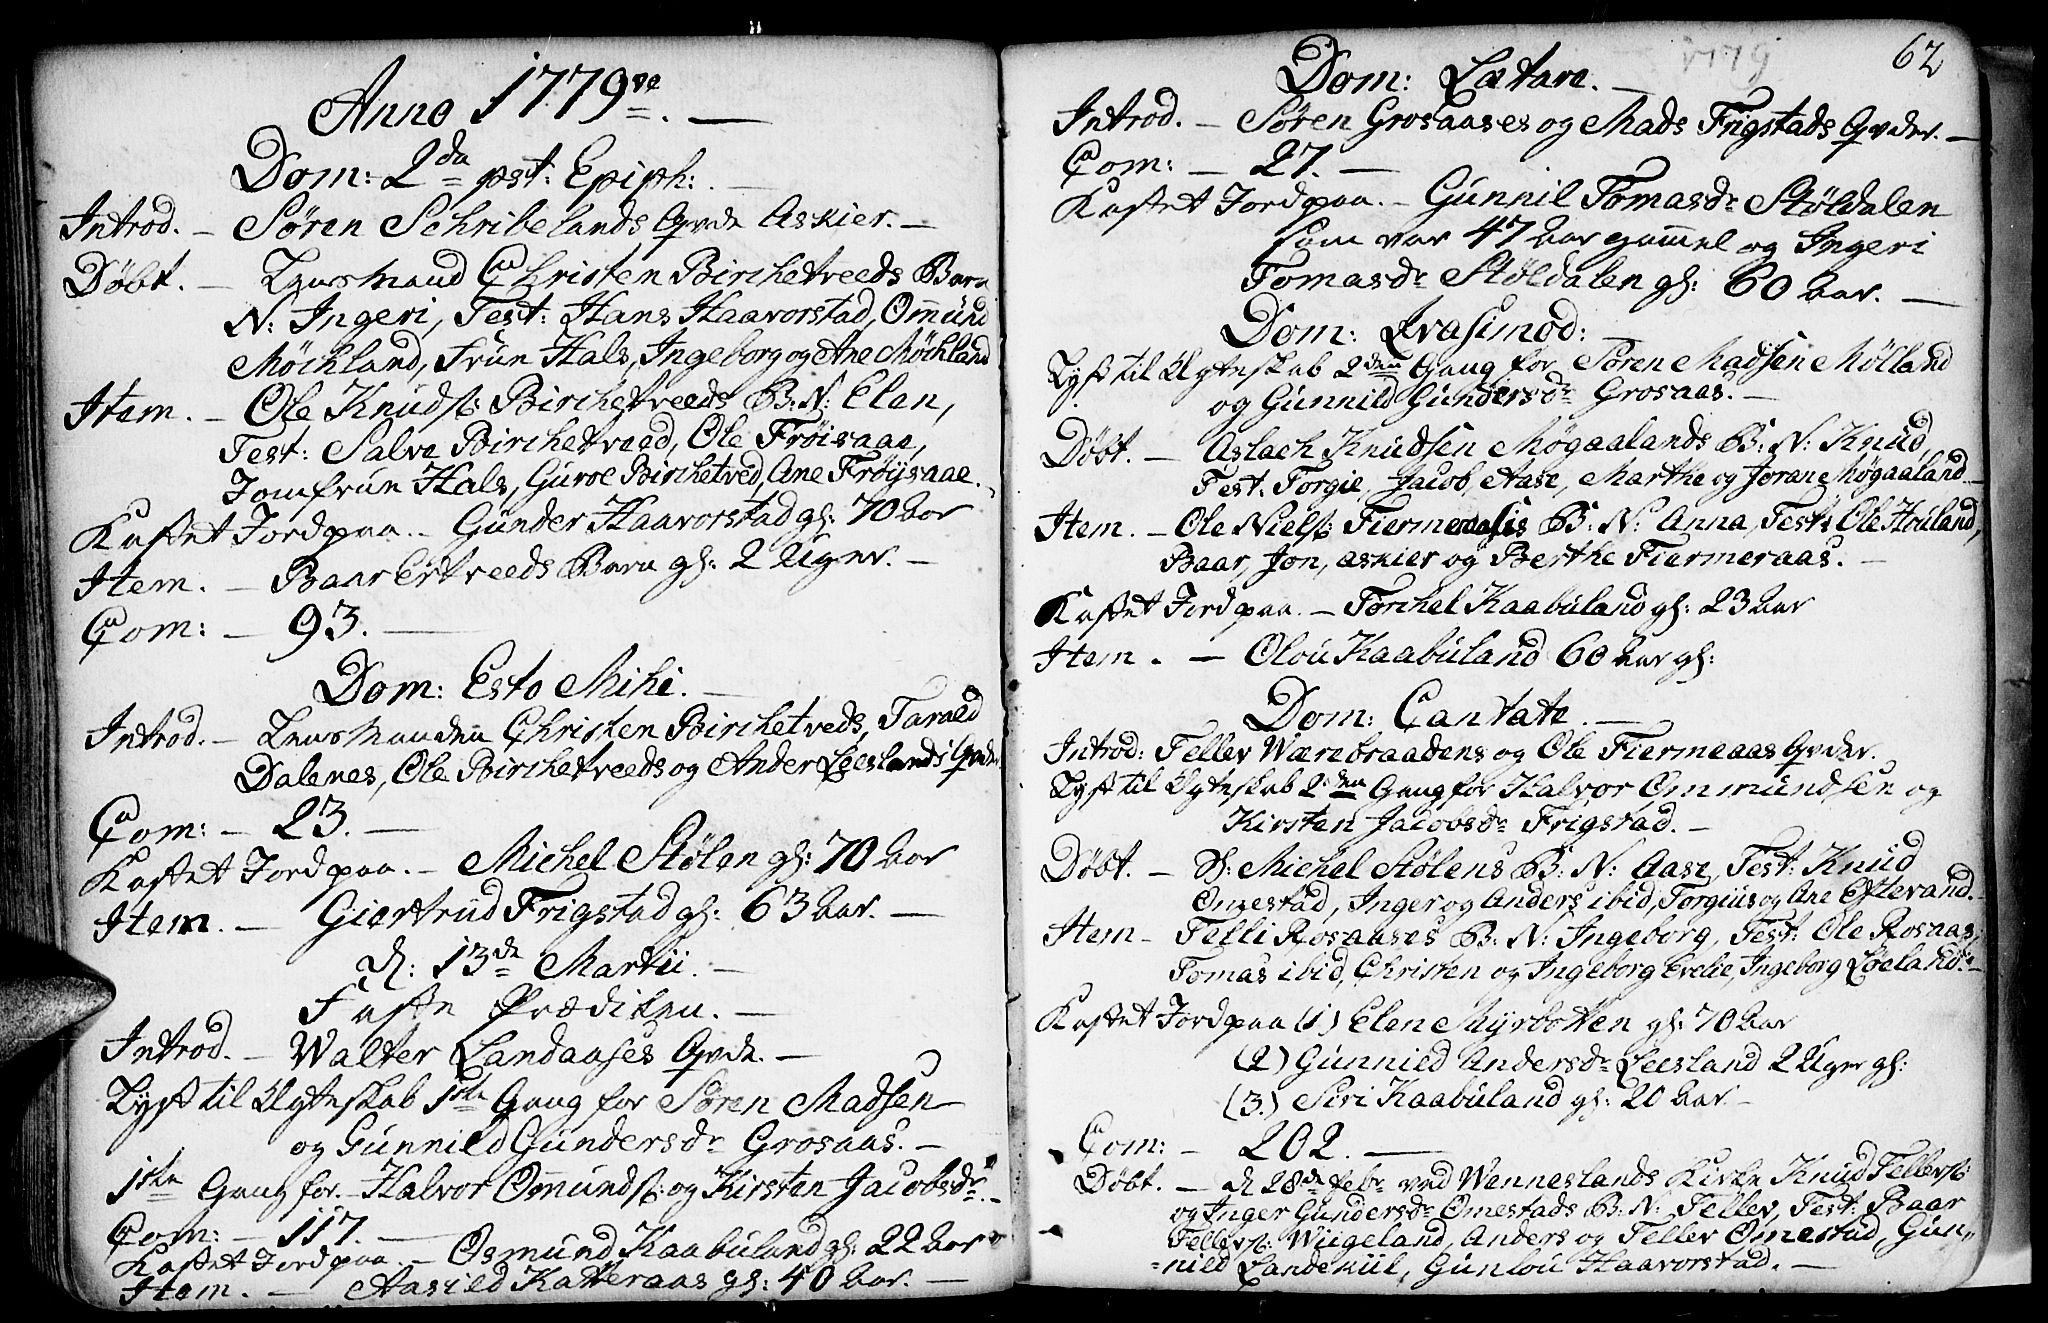 Anno 1779ve. —
Dom: 2da pst: Epiph: —
Introd. — Søren Schribelands Qvde Askier. —
Døbt. — Lensmand Christen Birchetveeds Barn
N: Ingeri, Test: Hans Haavorstad, Omund
Møchland, Frue Hals, Ingeborg og Ane Møchland
Item. — Ole Knuds: Birchetveeds B: N: Elen,
Test: Salve Birchetveed, Ole Frøisaae,
Jomfrue Hals, Guroe Birchetved, Ane Frøysaae.
Kastet Jord paa. — Gunder Haavorstad gl: 70 Aar
Item. — Baar Ertveeds Barn gl: 2 Uger. —
Com: — 93. —
Dom: Esto Mihi. —
Introd. — Lensmanden Christen Birchetveds, Tarald
Dalenes, Ole Birchetveeds og Ander Leeslands Qvder.
Com: — 23. —
Kastet Jord paa. — Michel Stølen gl: 70 Aar
Item. — Giertrud Frigstad gl: 63 Aar. —
d: 13de Martii. —
Faste Prædiken. —
Introd. — Walter Landaases Qvde. —
Lyst til Ægteskab 1ste Gang for Søren Madsen
og Gunnild Gundersdr Grosaas. —
1ste Gang for. Halvor Omunds: og Kirsten Jacobsdr. —
Com: — 117. —
Kastet Jord paa. — Osmund Kaabuland gl: 22 Aar
Item. — Aasild Katteraas gl: 40 Aar. —
1779
62
Dom: Lætare. —
Introd. — Søren Grosaases og Mads Frigstads Qvder. —
Com: — 27. —
Kastet Jord paa. — Gunnil Tomasdr Støldalen
som var 47 Aar gammel og Ingeri
Tomasdr Støldalen gl: 60 Aar. —
Dom: Qvasimod:
Lyst til Ægteskab 2den Gang for Søren Madsen Mølland
og Gunnild Gundersdr Grosaas. —
Døbt. — Aslach Knudsen Møgaalands B: N: Knud,
Test: Torgie, Jacob, Aase, Marthe og Joran Møgaaland. —
Item. — Ole Niels: B: N: Anna, Test: Ole Houland,
Baar, Jon, Askier og Berthe Fiermeraas. —
Kastet Jord paa. — Torchel Kaabuland gl: 23 Aar
Item. — Olou Kaabuland 60 Aar gl:
Dom: Cantate. —
Introd: Tellev Wærebraadens og Ole Fiermeaas Qvder.
Lyst til Ægteskab 2den Gang for Halvor Ommundsen og
Kirsten Jacobsdr Frigstad. —
Døbt. — S: Michel Stølens B: N: Aase, Test: Knud
Omestad, Inger og Anders ibid, Torgius og Ane Eftevand. —
Item — Telli Rosaases B: N: Ingeborg, Test: Ole Rosaas,
Tomas ibid, Christen og Ingeborg Evelie, Ingeborg Løeland. —
Kastet Jord paa (1) Elen Myrbotten gl: 70 Aar
(2) Gunnild Andersdr Leesland 2 Uger gl:
(3.) Siri Kaabuland gl: 20 Aar. —
Com: — 202. —
Døbt. — d 28de Febr ved Wenneslands Kirke Knud Tellevs:
og Inger Gundersdr Omestads B: N: Tellev, Test: Baar
Tellevs: Wiigeland, Anders og Tellev Omestad, Gun-
nild Landekiil, Gunlou Haavorstad. —